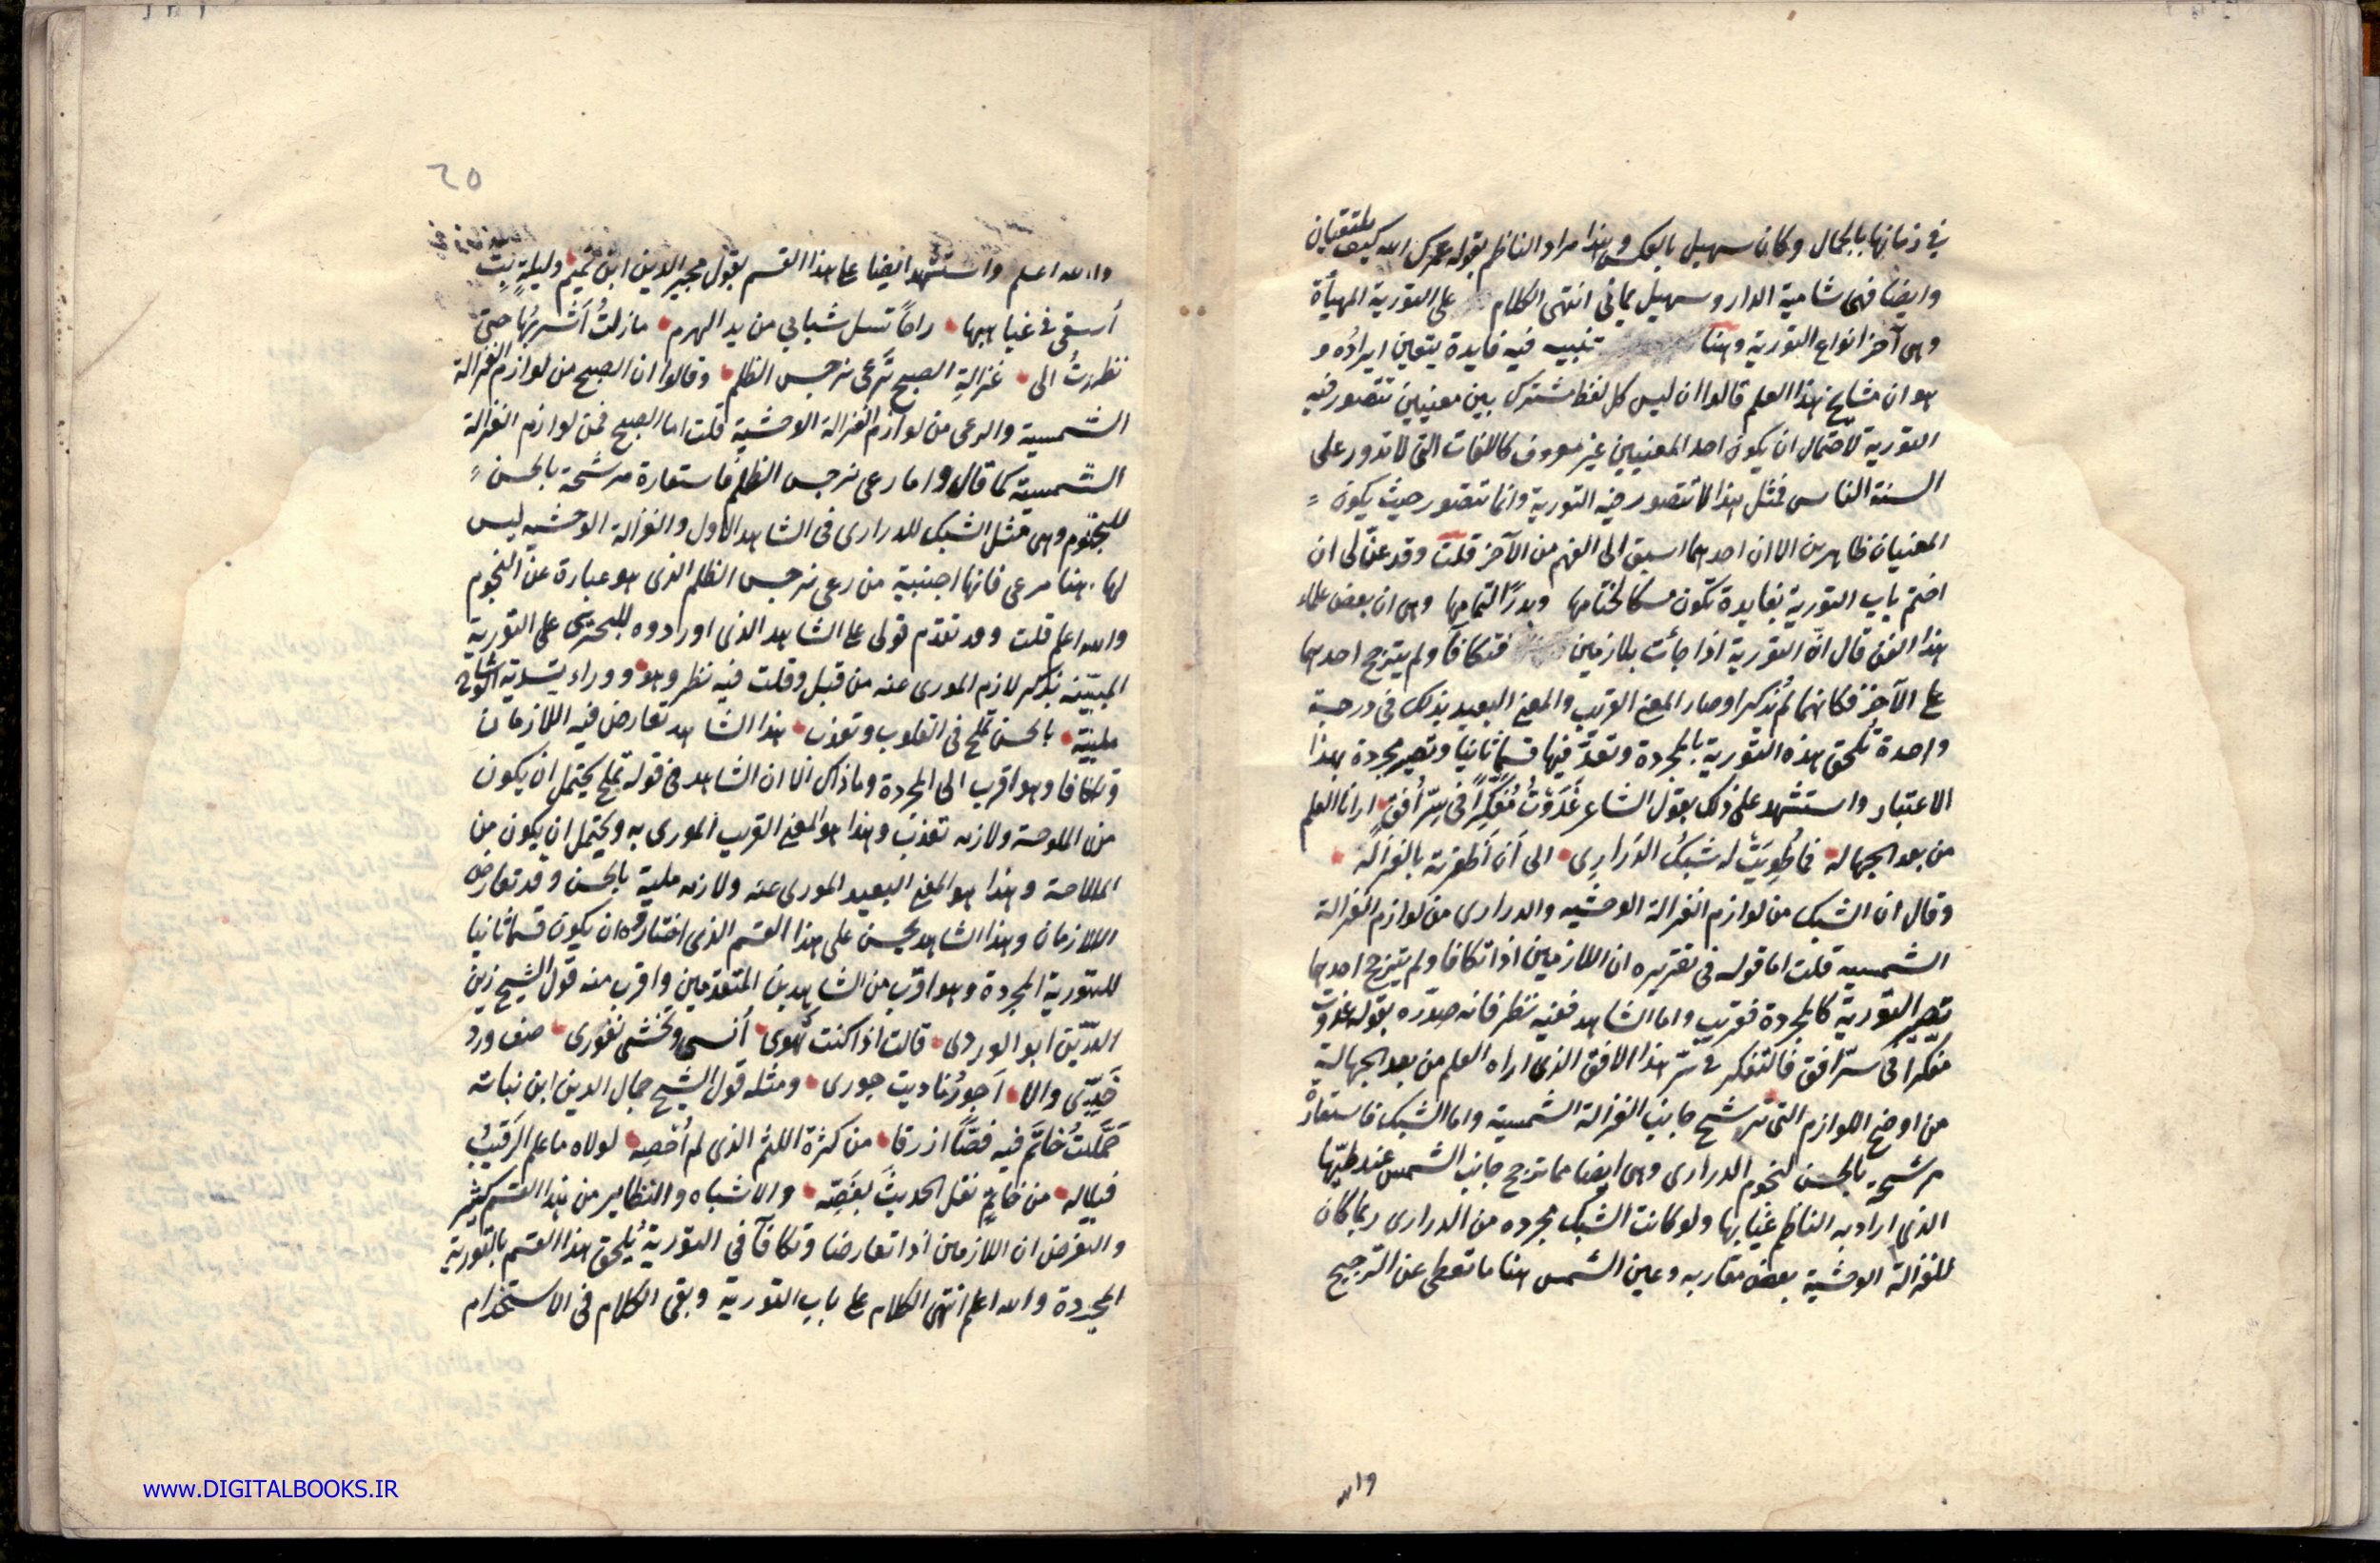 في زمانها بالجمال وكان سهيل بالعكس وهذا مراد الناظم بقوله عمرك الله كيف يلتقيان
وايضا فهي شامية الدار وسهيل يماني انتهى الكلام على التورية المهيأة
وهي آخر انواع التورية وهنا تنبيه فيه فايدة يتعين ايراده و
هو ان مشايخ هذا العلم قالوا ان ليس كل لفظ مشترك بين معنيين تتصور فيه
التورية لاحتمال ان يكون احد المعنيين غير معروف كاللغات التي لا تدور على
السنة الناس فمثل هذا لا تتصور فيه التورية وانما تتصور حيث يكون
المعنيان ظاهرين الا ان احدهما اسبق الى الفهم من الآخر قلت وقد عنّ لي ان
اختم باب التورية بفايدة تكون مسكا لختامها وبدرًا لتمامها وهي ان بعض علماء
هذا الفن قال انّ التورية اذا جاءت بلازمين فتكافآ ولم يترجح احدهما
على الآخر فكانهما لم يُذكرا وصار المعنى القريب والمعنى البعيد بذلك في درجة
واحدة تُلحق هذه التورية بالمجردة وتعدّ فيها قسمًا ثانيا وتصير مجردة بهذا
الاعتبار واستشهد على ذلك بقول الشاعر غَدَوْتُ مُفَكِّرًا في سِرّ أُفْقٍ ارانا العلم
من بعد الجهاله فما طُوِيَتْ له شبكُ الدَراري الى أن أظفرته بالغزاله
وقال ان الشبك من لوازم الغزالة الوحشيه والدراري من لوازم الغزالة
الشمسيه قلت اما قوله في تقريره ان اللازمين اذا تكافا ولم يترجح احدهما
تصير التورية كالمجردة فقريب واما الشاهد ففيه نظر فانه صدّره بقوله غدوت
مفكّرا في سرّ افق فالتفكر في سرّ هذا الافق الذي اراه العلم من بعد الجهالة
من اوضح اللوازم التي ترشح جانب الغزالة الشمسية واما الشبك فاستعارة
مرشحة بالحسن لنجوم الدراري وهي ايضا مما ترجح جانب الشمس عند طيّها
الذي اراد به الناظم غيابها ولو كانت الشبك مجرده من الدراري ربما كان
للغزالة الوحشية بعض مقاربه وعين الشمس هنا ما تغطى عن الترجيح
والله
٦٥
والله اعلم واستشهد ايضا على هذا القسم بقول مجير الدين ابن تميم وليلةٍ بتّ
أسقى في غياهبها راحًا تسل شبابي من يد الهرم ما زلتُ أشربُها حتى
نظرتُ الى غزالةِ الصبح تَرعى نرجس الظلم وقالوا ان الصبح من لوازم الغزالة
الشمسية والرعى من لوازم الغزالة الوحشية قلت اما الصبح فمن لوازم الغزالة
الشمسية كما قال واما رعى نرجس الظلم فاستعارة مرشحة بالحسن
للنجوم وهي مثل الشبك للدراري في الشاهد الاول والغزالة الوحشيه ليس
لها هنا مرعى فانها اجنبية من رعى نرجس الظلم الذي هو عبارة عن النجوم
والله اعلم قلت وقد تقدّم قولي على الشاهد الذي اوردوه للبحتري على التورية
المبيّنه بذكر لازم المورى عنه من قبل وقلت فيه نظر وهو ووراء تسدية الوشاح
مليّة بالحسن تملح في القلوب وتعذب هذا الشاهد تعارض فيه اللازمان
وتكافا وهو اقرب الى المجردة وما ذاك الا ان الشاهد في قوله تملح يحتمل ان يكون
من الملوحة ولازمه تعذب وهذا هو المعنى القريب المورى به ويحتمل ان يكون من
الملاحة وهذا هو المعنى البعيد المورى عنه ولازمه ملية بالحسن وقد تعارض
اللازمان وهذا الشاهد يحسن على هذا القسم الذي اختاروه ان يكون قسما ثانيا
للتورية المجردة وهو اقرب من الشاهدين المتقدمين واقرب منه قول الشيخ زين
الدّين ابو الوردي قالت اذا كنت تهوى أنسي وتخشى نفوري صف ورد
خَدِّي والا اَجورُ ناديت جوري ومثله قول الشيخ جمال الدين ابن نباته
حَمَلتُ خاتَم فيه فصًّا ازرقا من كثرة اللثم الذي لم اُحْصِه لولاه ما علم الرقيبُ
فياله من خاتمٍ نقل الحديثَ بفَصِّه والاشباه والنظاير من هذا القسم كثير
والغرض ان اللازمين اذا تعارضا وتكافآ في التورية يُلحق هذا القسم بالتورية
المجردة والله اعلم انتهى الكلام على باب التورية وبقى الكلام في الاستخدام
www.DIGITALBOOKS.IR